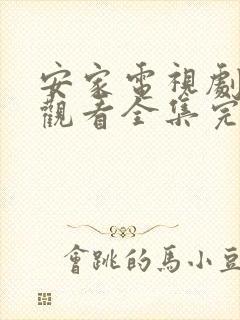 安家電視劇
觀看全集完
會跳的馬小豆